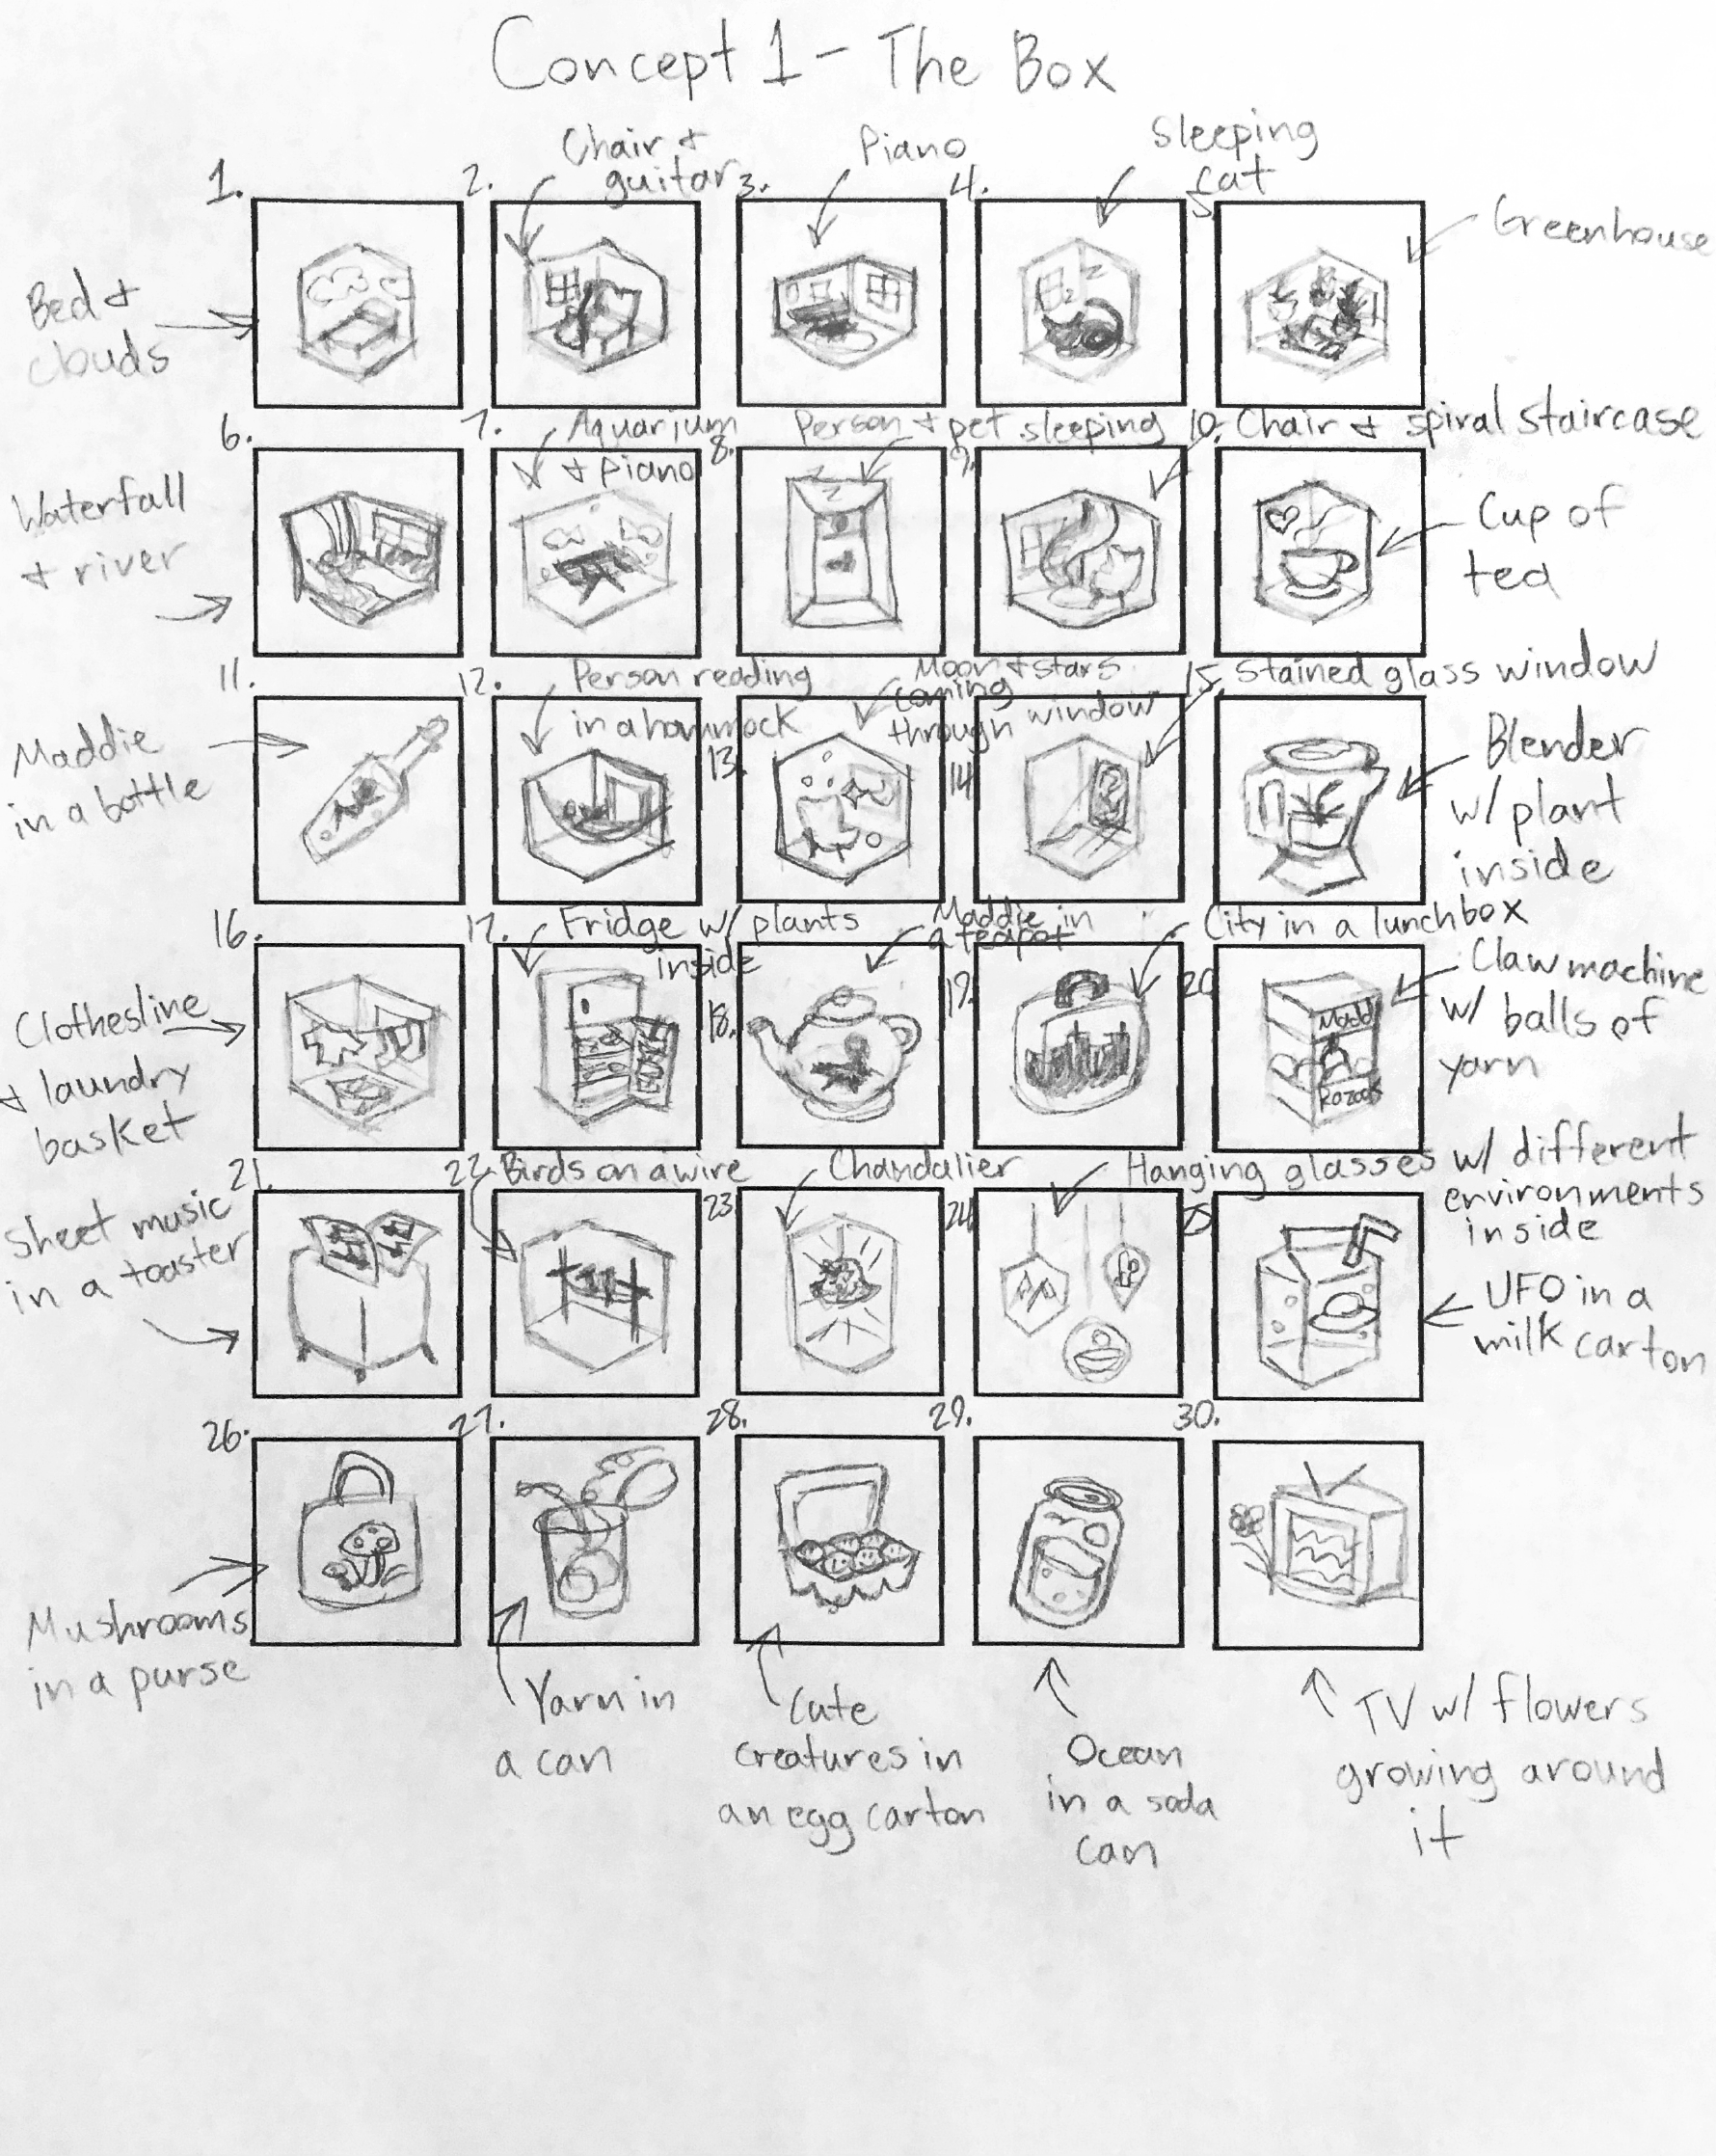 Concept 1 - The Box
1.
Bed &
clouds
2.
Chair &
guitar
3.
Piano
4.
Sleeping
cat
5
Greenhouse
6.
Waterfall
& river
7.
Aquarium
& piano
8.
Person & pet sleeping
9.
Chair & spiral staircase
10.
Cup of
tea
11.
Maddie
in a bottle
12.
Person reading
in a hammock
13.
Moon & stars
coming
through window
14.
Stained glass window
15.
Blender
w/ plant
inside
16.
Clothesline
& laundry
basket
17.
Fridge w/ plants
inside
18.
Maddie in
a teapot
19.
City in a lunchbox
20.
Claw machine
w/ balls of
yarn
Madd
21.
Sheet music
in a toaster
22.
Birds on a wire
23.
Chandalier
24.
Hanging glasses w/ different
environments
inside
25
UFO in a
milk carton
26.
Mushrooms
in a purse
27.
Yarn in
a can
28.
Cute
creatures in
an egg carton
29.
Ocean
in a soda
can
30.
TV w/ flowers
growing around
it